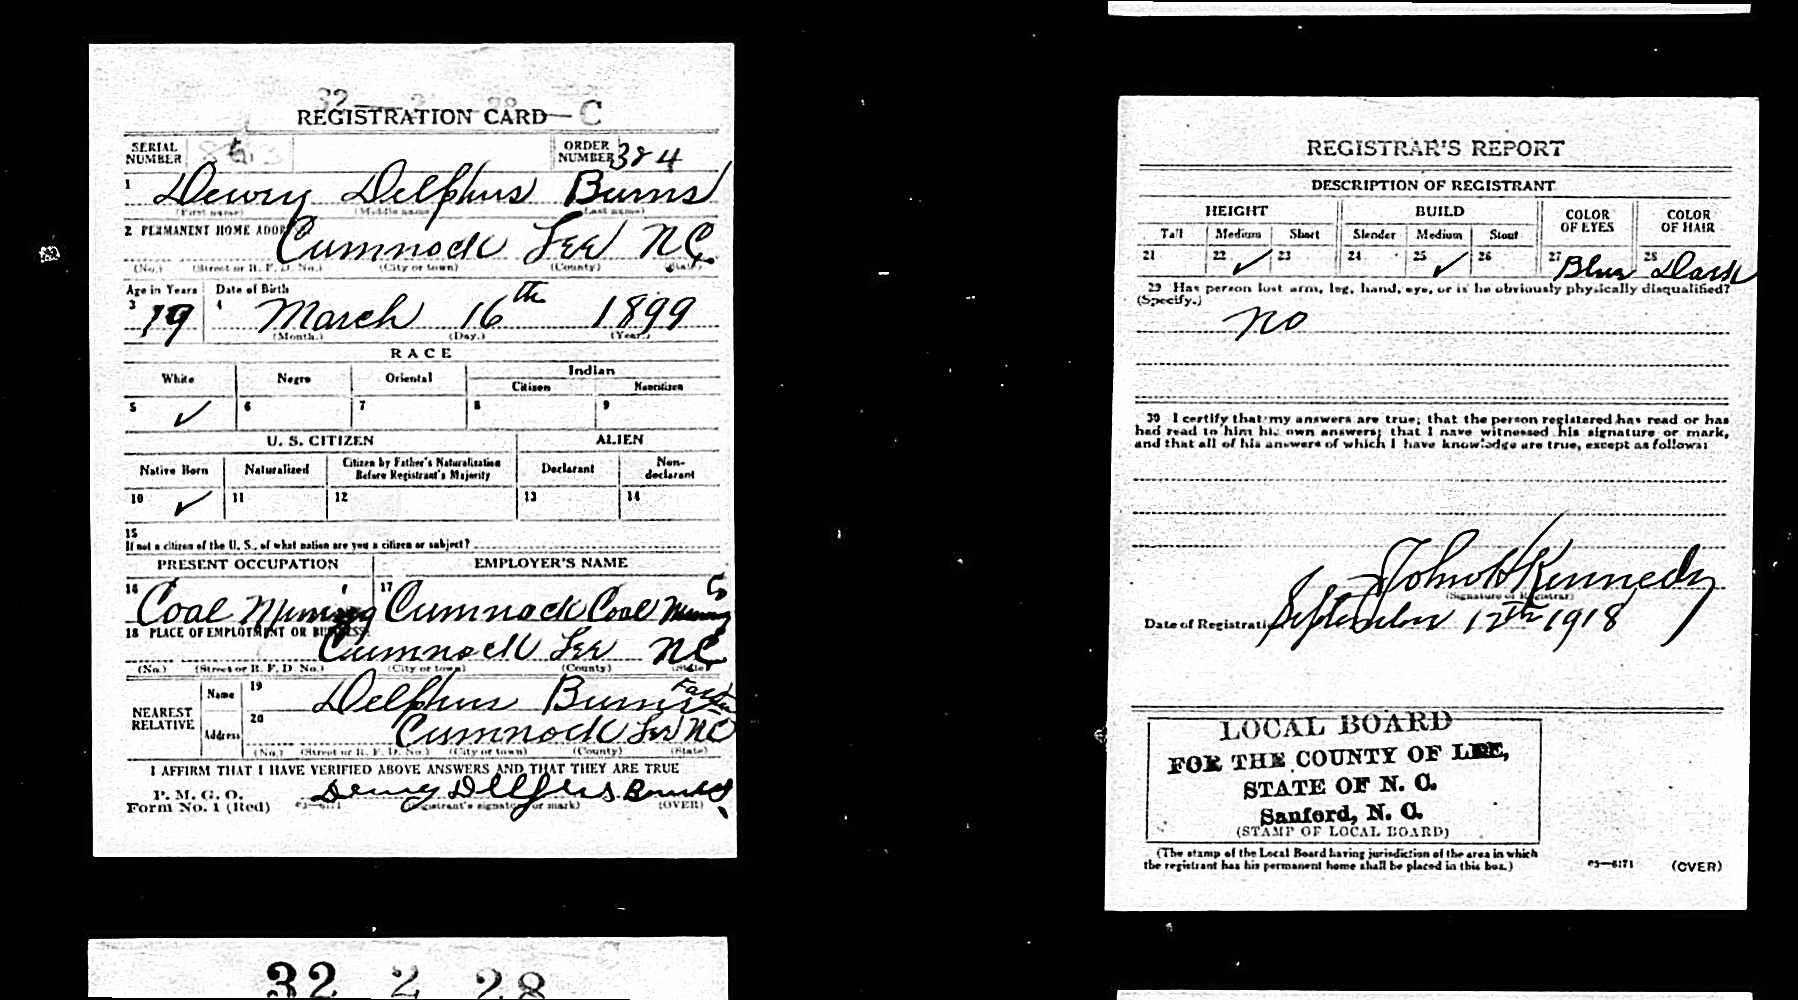 32 2 28 C
REGISTRATION CARD
SERIAL NUMBER
ORDER NUMBER 384
1 Dewey Delphus Burns
(First name) (Middle name) (Last name)
2 PERMANENT HOME ADDRESS Cumnock Lee N C.
(No.) (Street or R. F. D. No.) (City or town) (County) (State)
Age in Years Date of Birth
3 19 4 March 16th 1899
(Month.) (Day.) (Year.)
RACE
White Negro Oriental Indian
Citizen Noncitizen
5 ✓ 6 7 8 9
U. S. CITIZEN ALIEN
Native Born Naturalized Citizen by Father's Naturalization Before Registrant's Majority Declarant Non-declarant
10 ✓ 11 12 13 14
15
If not a citizen of the U. S., of what nation are you a citizen or subject?
PRESENT OCCUPATION EMPLOYER'S NAME
16 Coal Mining 17 Cumnock Coal Mining Co
18 PLACE OF EMPLOYMENT OR BUSINESS:
Cumnock Lee NC
(No.) (Street or R. F. D. No.) (City or town) (County) (State)
NEAREST RELATIVE
Name 19 Delphus Burns Father
Address 20 Cumnock Lee NC
(No.) (Street or R. F. D. No.) (City or town) (County) (State)
I AFFIRM THAT I HAVE VERIFIED ABOVE ANSWERS AND THAT THEY ARE TRUE
P. M. G. O.
Form No. 1 (Red) 03—6171 Dewey Delphus Burns
(Registrant's signature or mark) (OVER)
32 2 28
REGISTRAR'S REPORT
DESCRIPTION OF REGISTRANT
HEIGHT BUILD COLOR OF EYES COLOR OF HAIR
Tall Medium Short Slender Medium Stout
21 22 ✓ 23 24 25 ✓ 26 27 Blue 28 Dark
29 Has person lost arm, leg, hand, eye, or is he obviously physically disqualified?
(Specify.)
no
30 I certify that my answers are true; that the person registered has read or has
had read to him his own answers; that I have witnessed his signature or mark,
and that all of his answers of which I have knowledge are true, except as follows:
John H Kennedy
(Signature of Registrar)
Date of Registration September 12th 1918
LOCAL BOARD
FOR THE COUNTY OF LEE,
STATE OF N. C.
Sanford, N. C.
(STAMP OF LOCAL BOARD)
(The stamp of the Local Board having jurisdiction of the area in which
the registrant has his permanent home shall be placed in this box.)
03—6171 (OVER)